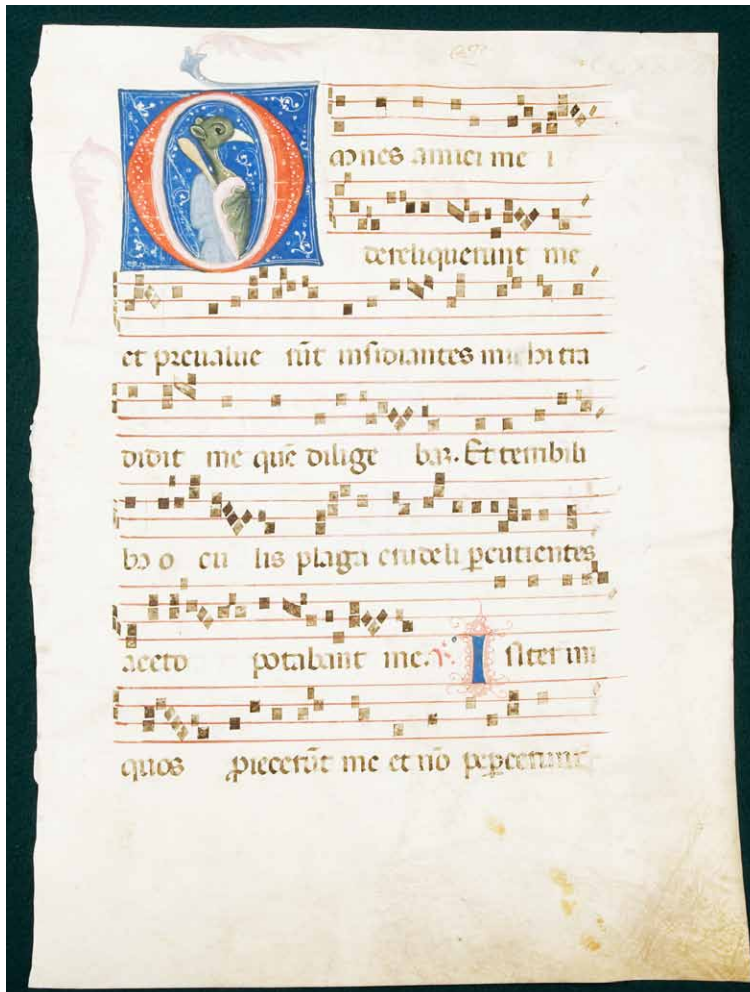 Omnes amici me i
dereliquerunt me
et preualue rūt insidiantes michi tra
didit me quē dilige baꝫ. Et terribili
bꝫ o cu lis plaga crudeli ꝑcutientes
aceto potabant me. ℣. Inter ini
quos ꝓiecerūt me et nō peꝑcerunt